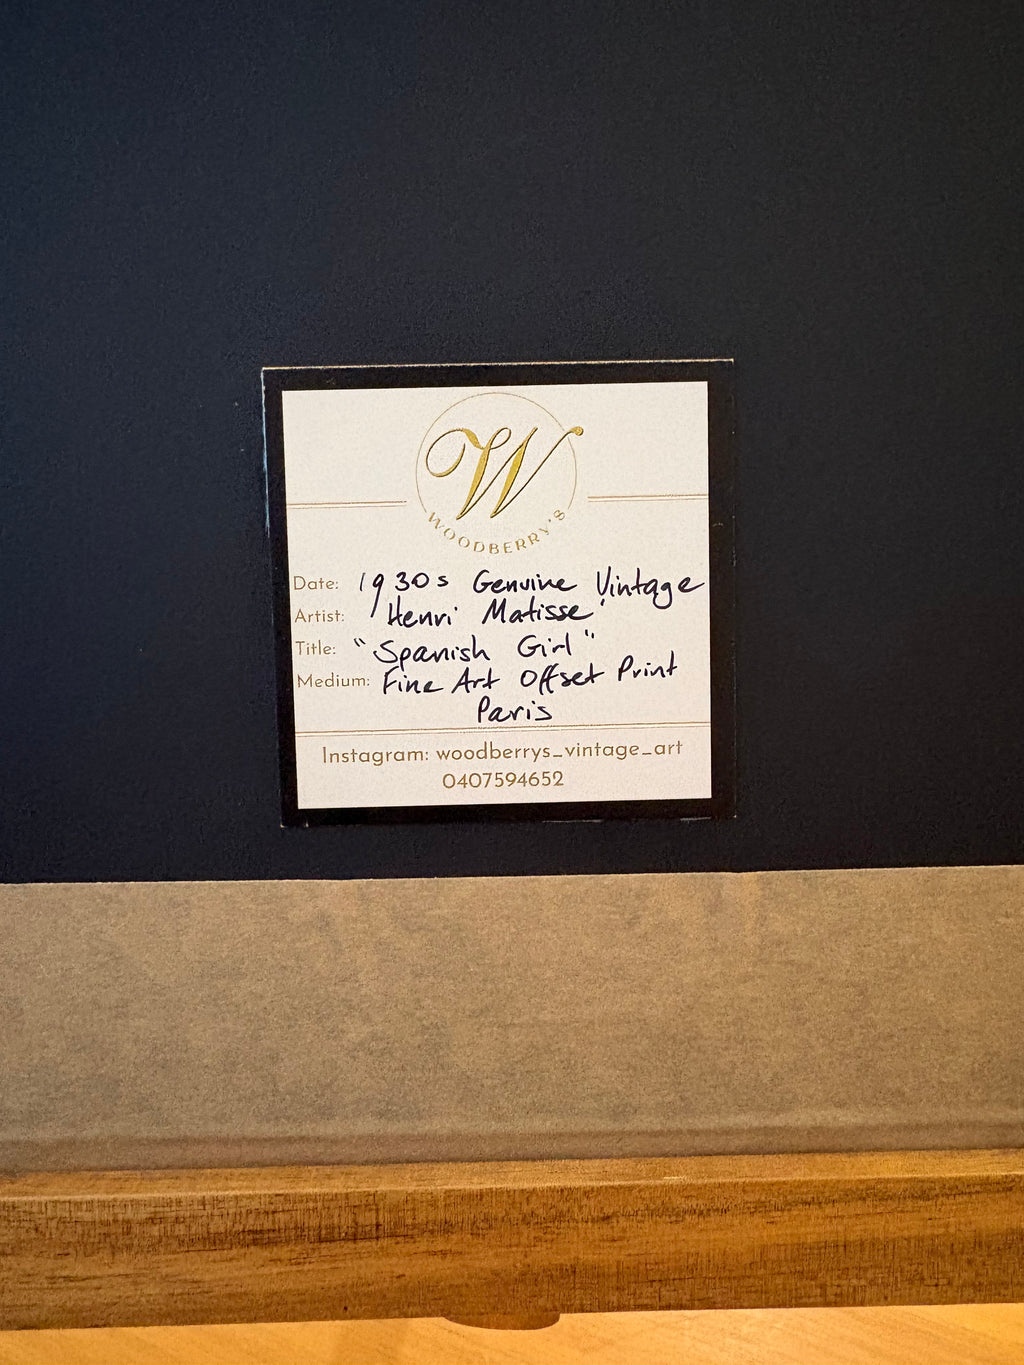 W
WOODBERRY'S
Date: 1930s Genuine Vintage
Artist: 'Henri Matisse'
Title: "Spanish Girl"
Medium: Fine Art Offset Print
Paris
Instagram: woodberrys_vintage_art
0407594652